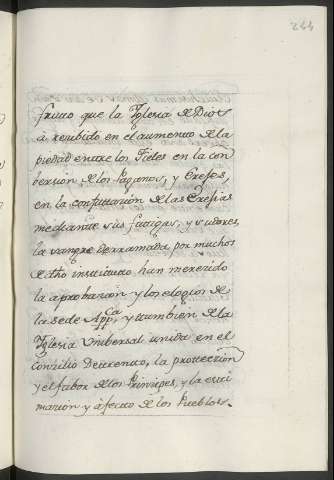 244
fruto que la Iglesia de Dios
à recibido en el aumento de la
piedad entre los Fieles en la con
bersion de los Paganos, y Erejes,
en la confutacion de las Eregias
mediante sus fatigas, y sudores,
la sangre derramada por muchos
de dho instituto han merecido
la aprobacion y los elogios de
la sede Appca, y tambien de la
Iglesia Unibersal unida en el
conzilio de trento, la proteccion
y el fabor de los Principes, y la esti
macion y afecto de los Pueblos.